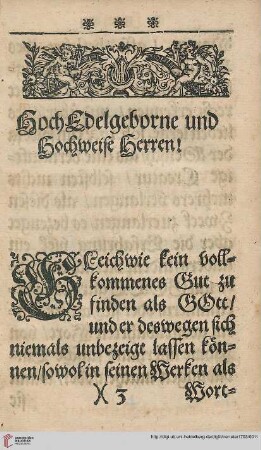 * * *
HochEdelgeborne und
Hochweise Herren!
GLeichwie kein voll-
kommenes Gut zu
finden als GOtt/
und er deswegen sich
niemals unbezeigt lassen kön-
nen/sowol in seinen Werken als
)( 3 Wort-